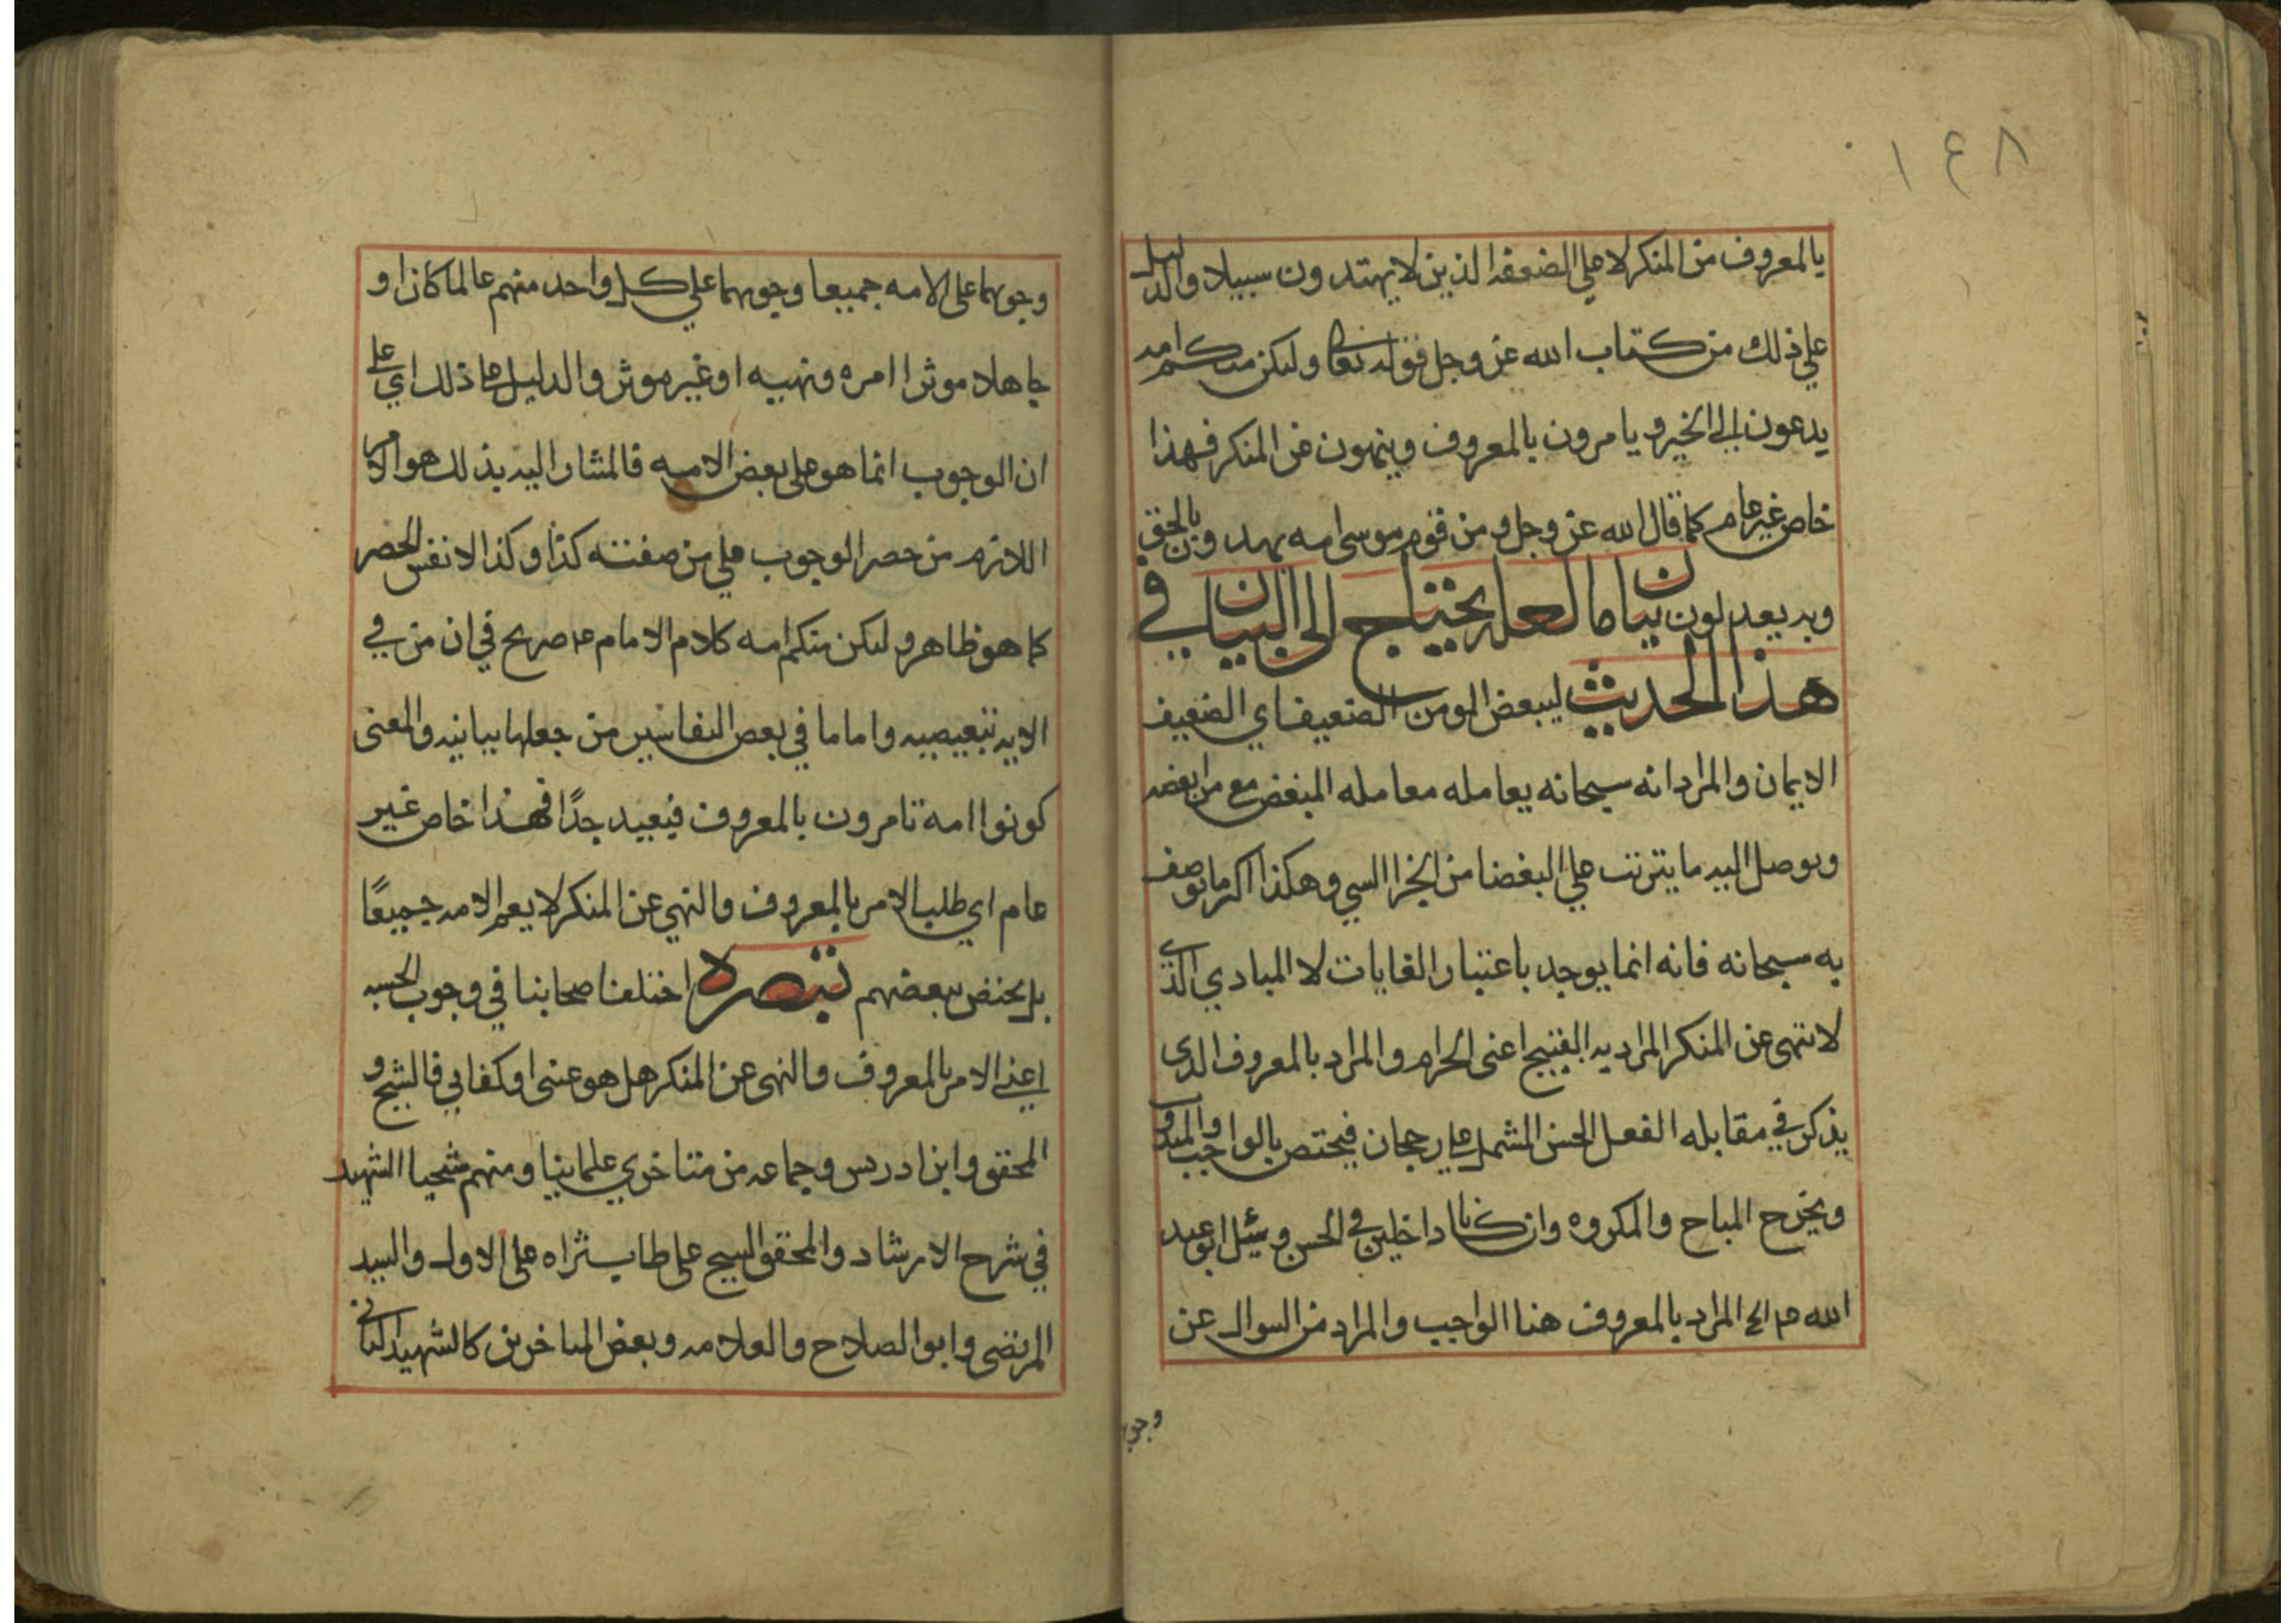 ١٤٨
بالمعروف من المنكر لا علي الضعفه الذين لا يهتدون سبيلا والدليل
علي ذلك من كتاب الله عز وجل فقوله تعالى ولتكن منكم امه
يدعون الي الخير و يامرون بالمعروف وينهون عن المنكر فهذا
خاص غير عام كما قال الله عز وجل و من قوم موسي امه يهدون بالحق
وبه يعدلون بيان ما لعله يحتاج الي البيان في
هذا الحديث ليبغض المومن الضعيف اي الضعيف
الايمان والمراد انه سبحانه يعامله معامله المبغض مع من ابغضه
ويوصل اليه ما يترتب علي البغضا من الجزا السي وهكذا اكثر ما يوصف
به سبحانه فانه انما يوجد باعتبار الغايات لا المبادي الذي
لا ينهى عن المنكر المراد به القبيح اعنى الحرام والمراد بالمعروف الذى
يذكر في مقابله الفعل الحسن المشتمل علي رجحان فيختص بالواجب والمندوب
ويخرج المباح والمكروه وان كانا داخلين في الحسن و سئل ابو عبد
الله ع م الخ المراد بالمعروف هنا الواجب والمراد من السوال عن
وجو
وجوبهما على الامه جميعا وجوبهما علي كل واحد منهم عالما كان او
جاهلا موثرا امره ونهيه او غير موثر والدليل علي ذلك اي علي
ان الوجوب انما هو علي بعض الامه فالمشار اليه بذلك هو الامر
اللازم من حصر الوجوب علي من صفته كذا وكذا لا نفس الحصر
كما هو ظاهر و لتكن منكم امه كلام الامام ع م صريح في ان من في
الايه تبعيضيه واما ما في بعض التفاسير من جعلها بيانيه والمعنى
كونوا امه تامرون بالمعروف فبعيد جدًا فهذا خاص غير
عام اي طلب الامر بالمعروف والنهي عن المنكر لا يعم الامه جميعًا
بل يختص ببعضهم تبصره اختلف اصحابنا في وجوب الحسبه
اعني الامر بالمعروف والنهى عن المنكر هل هو عينى او كفايي فالشيخ و
المحقق وابن ادريس وجماعه من متاخري علماينا ومنهم شيخنا الشهيد
في شرح الارشاد والمحقق الشيخ على طاب ثراه على الاول والسيد
المرتضى وابو الصلاح والعلامه وبعض المتاخرين كالشهيد الثاني